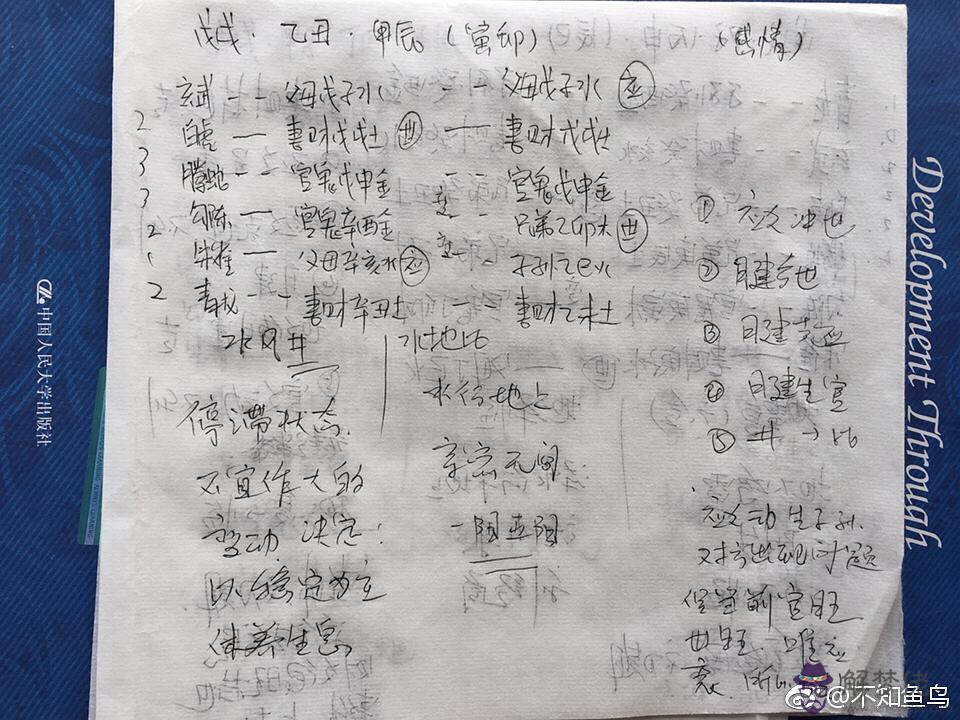 戊戌·乙丑·甲辰（寅卯）（感情）
玄武 -- 父母戊子水 -- 父母戊子水 应
2 白虎 — 妻财戊戌土 世 — 妻财戊戌土
3 腾蛇 -- 官鬼戊申金 -- 官鬼戊申金
3 勾陈 — 官鬼辛酉金 -- 兄弟乙卯木 世
2 朱雀 — 父母辛亥水 应 -- 子孙乙巳火
1
2 青龙 -- 妻财辛丑土 -- 妻财乙未土
水风井 水地比
① 应爻冲世
② 日建合世
③ 日建克应
④ 日建生官
⑤ 井→比
停滞状态.
不宜作大的
变动 决定:
以稳定为主
休养生息
水行地上
亲密无间
一阳五阴
应爻动生子孙.
对方出现问题
但当前官旺
世旺. 唯应
衰.
中国人民大学出版社
Development Through
解梦佬
@不知鱼鸟